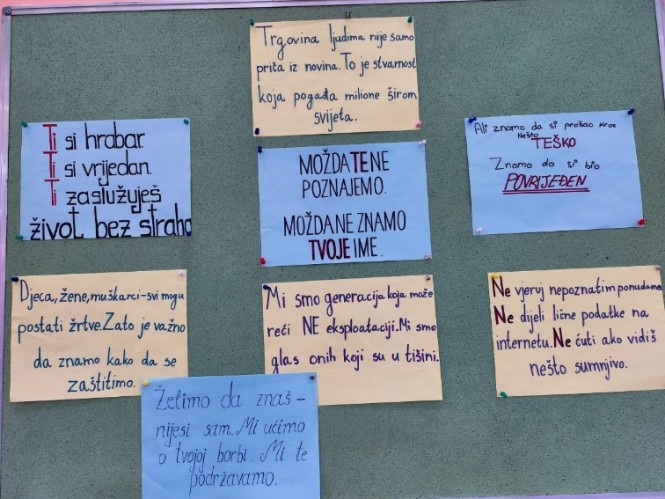 Trgovina ljudima nije samo
priča iz novina. To je stvarnost
koja pogađa milione širom
svijeta.
Ti si hrabar
Ti si vrijedan.
Ti zaslužuješ
život bez straha
MOŽDA TE NE
POZNAJEMO.
MOŽDA NE ZNAMO
TVOJE IME.
Ali znamo da si prošao kroz
Nešto
TEŠKO
Znamo da si bio
POVRIJEĐEN
Djeca, žene, muškarci-svi mogu
postati žrtve. Zato je važno
da znamo kako da se
zaštitimo.
Mi smo generacija koja može
reći NE eksploataciji. Mi smo
glas onih koji su u tišini.
Ne vjeruj nepoznatim ponudama
Ne dijeli lične podatke na
internetu. Ne ćuti ako vidiš
nešto sumnjivo.
Želimo da znaš -
nijesi sam. Mi učimo
o tvojoj borbi. Mi te
podržavamo.